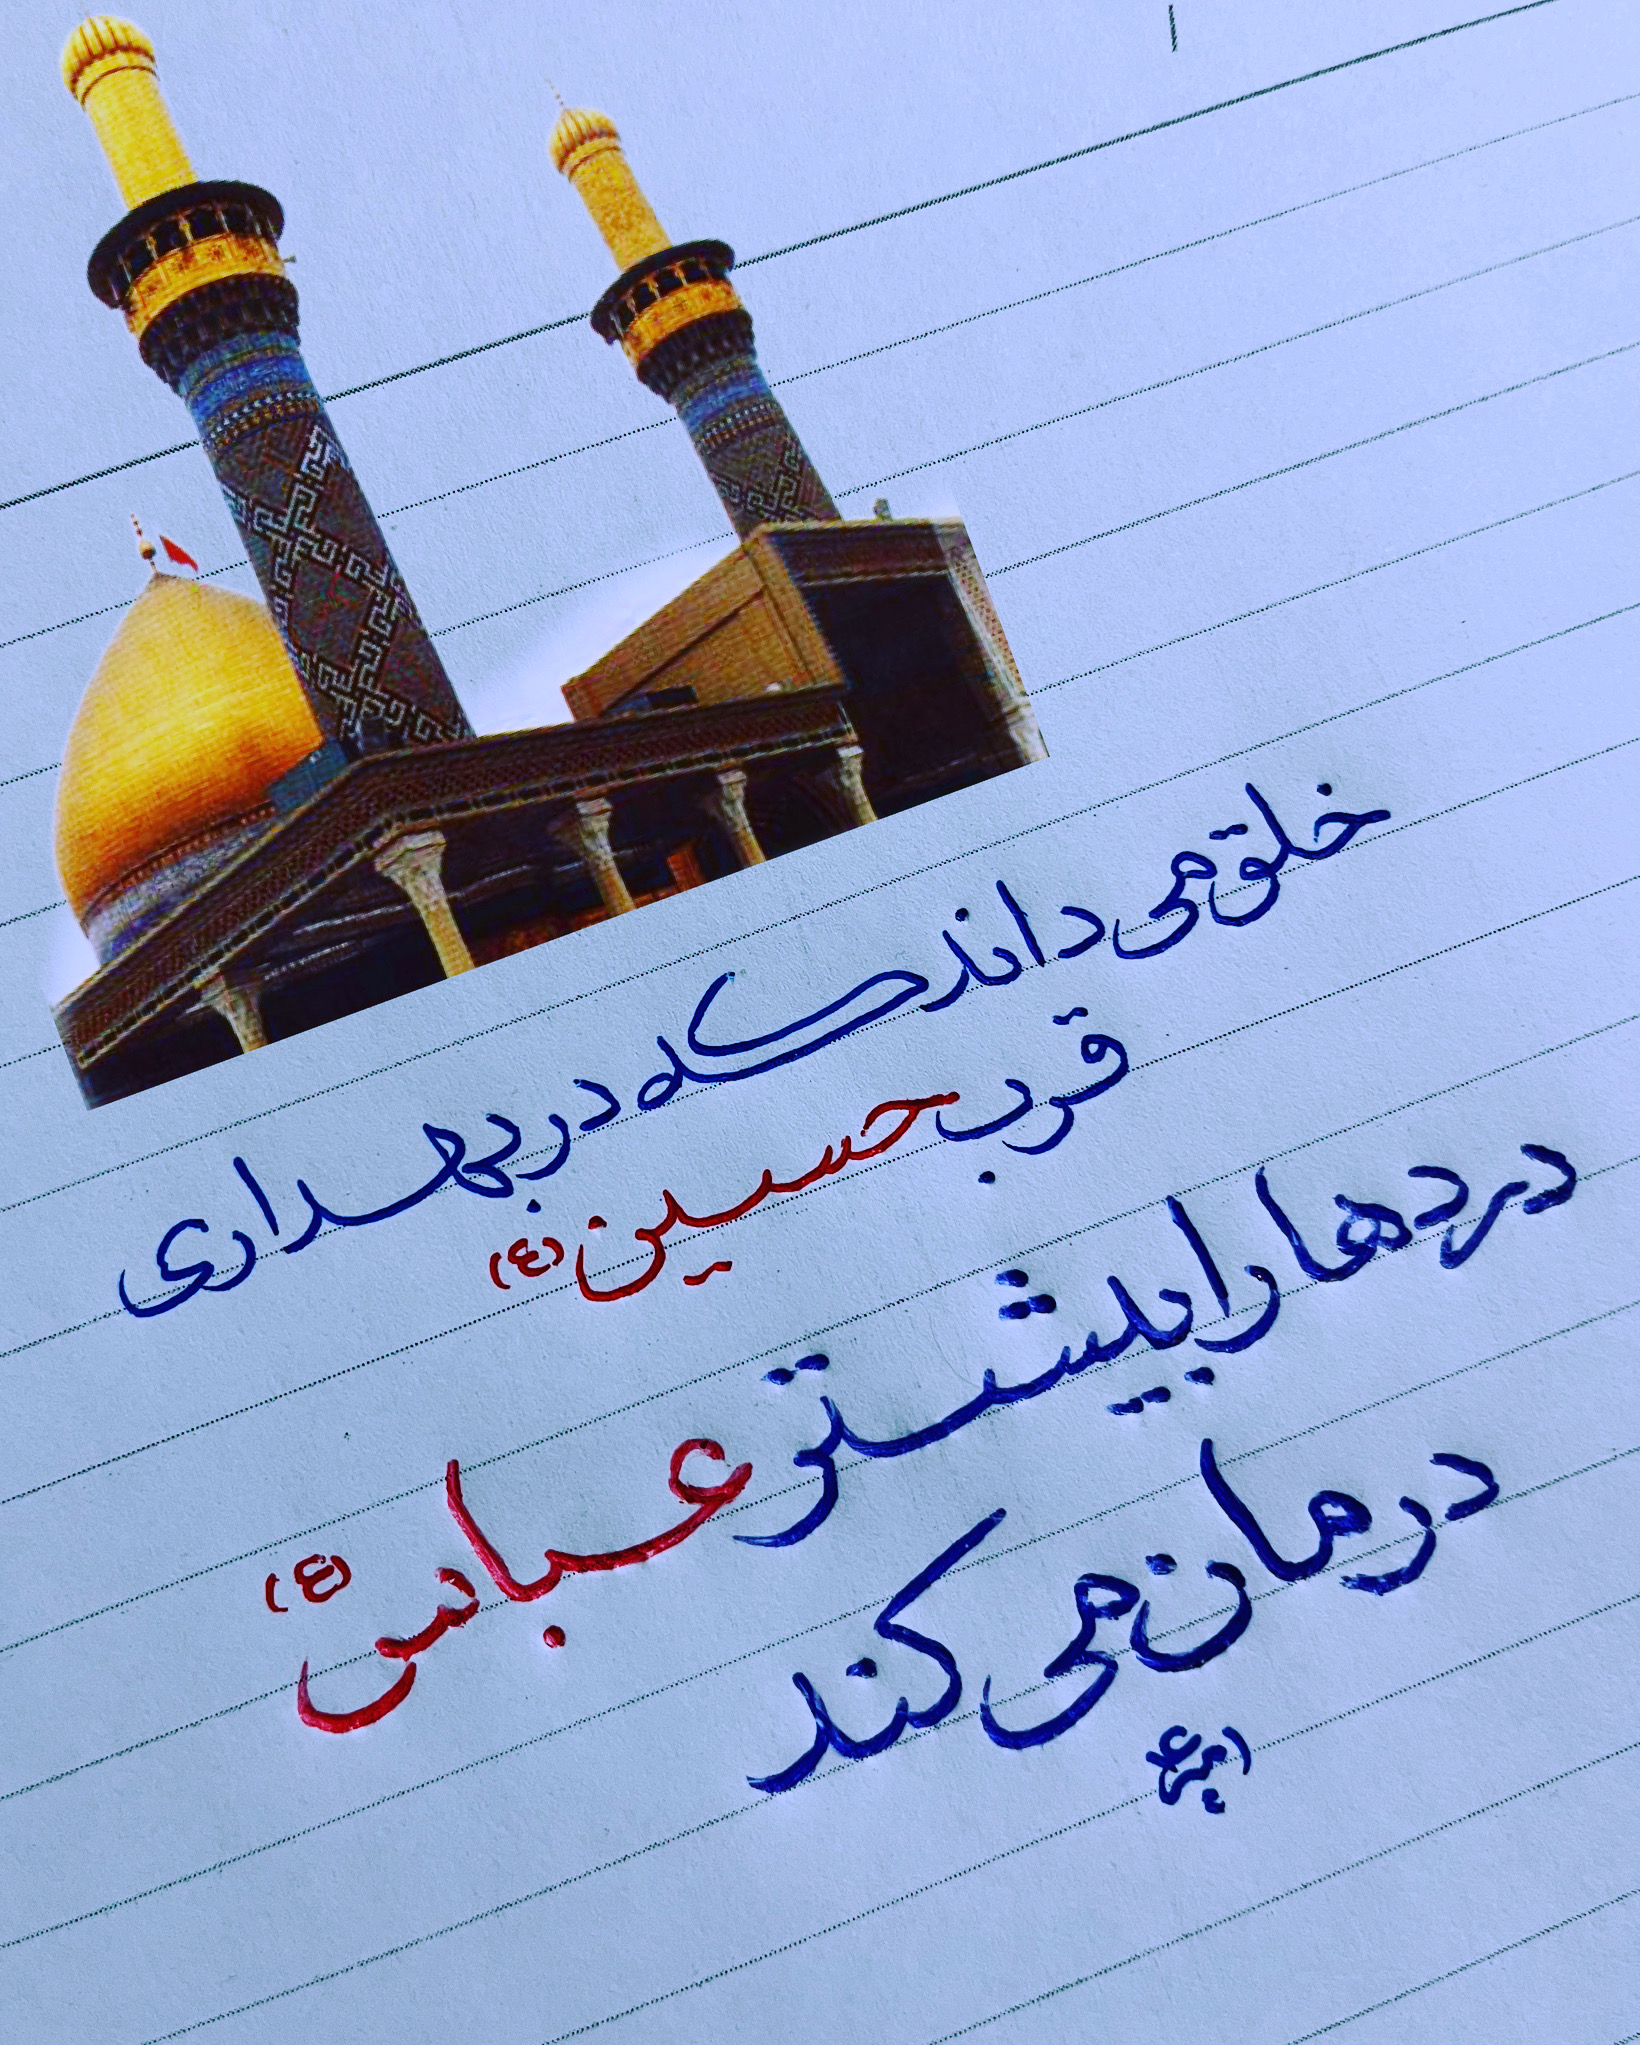 خلق می داند که در بهداری
قرب حسین (ع)
درد ها را بیشتر عباس (ع)
درمان می کند